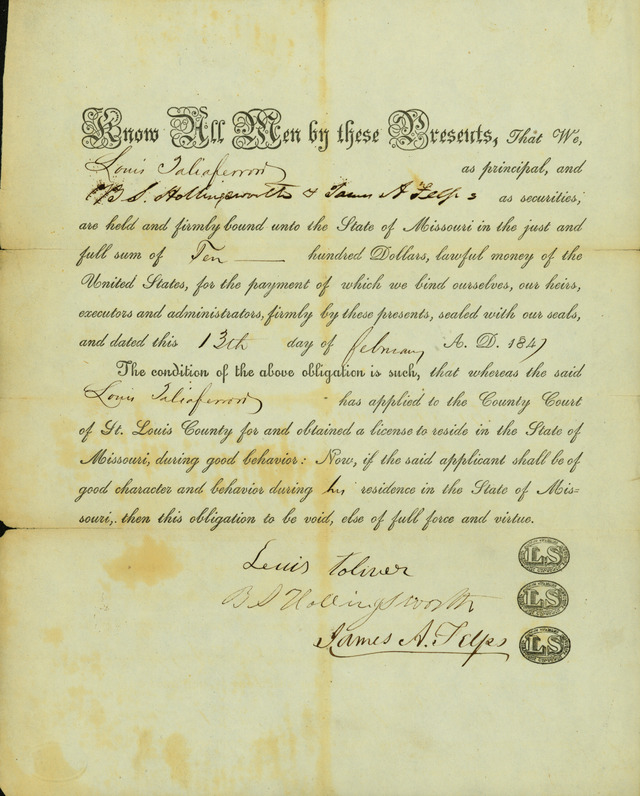 Know All Men by these Presents, That We,
Louis Taliaferro as principal, and
B S. Hollingsworth & James A Telps as securities,
are held and firmly bound unto the State of Missouri in the just and
full sum of Ten — hundred Dollars, lawful money of the
United States, for the payment of which we bind ourselves, our heirs,
executors and administrators, firmly by these presents, sealed with our seals,
and dated this 13th day of February A. D. 1847
The condition of the above obligation is such, that whereas the said
Louis Taliaferro has applied to the County Court
of St. Louis County for and obtained a license to reside in the State of
Missouri, during good behavior: Now, if the said applicant shall be of
good character and behavior during his residence in the State of Mis-
souri, then this obligation to be void, else of full force and virtue.
Lewis Toliver LS
B S Hollingsworth LS
James A. Telps LS